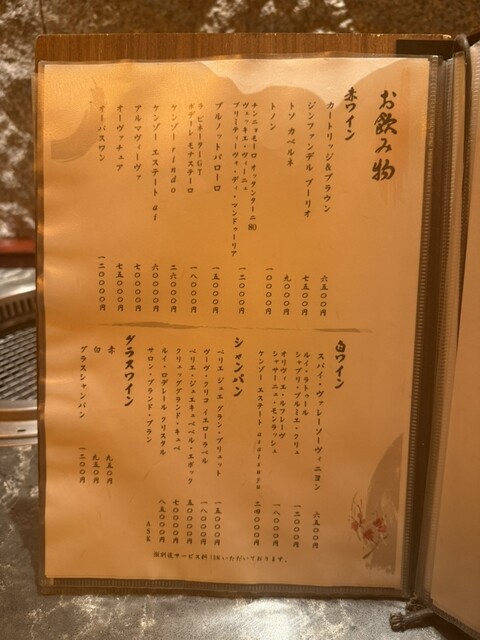 お飲み物
赤ワイン
カートリッジ&ブラウン 六五〇〇円
ジンファンデル ブーリオ 七五〇〇円
トソ カベルネ 九〇〇〇円
トノン 一〇〇〇〇円
チンニョモーロ オッタンターニ 80
ヴェッキエ・ヴィーニュ
プリミティーヴォ・ディ・マンドゥーリア 一二〇〇〇円
プルノットバローロ 一五〇〇〇円
ラビネーターGT
ボデーレ モナステーロ 一八〇〇〇円
ケンゾー rindo 二六〇〇〇円
ケンゾー エステート ai 六〇〇〇〇円
アルマヴィーヴァ 七〇〇〇〇円
オーヴァチュア 七五〇〇〇円
オーパスワン 一二〇〇〇〇円
白ワイン
スパイ・ヴァレーソーヴィニヨン 六五〇〇円
ルイ・ラトゥール
シャブリ・プルミエ・クリュ 一二〇〇〇円
オリヴィエ・ルフレーヴ
シャサーニュ・モンラッシェ 一八〇〇〇円
ケンゾー エステート asatsuyu 二四〇〇〇円
シャンパン
ベリエ ジュエ グラン・ブリュット 一五〇〇〇円
ヴーヴ・クリコ イエローラベル 一八〇〇〇円
ベリエ・ジュエキュベベル・エポック 五〇〇〇〇円
クリュッググランド・キュベ 七〇〇〇〇円
ルイ・ロデレール クリスタル 八五〇〇〇円
サロン・ブランド・ブラン ASK
グラスワイン
赤 九五〇円
白 九五〇円
グラスシャンパン 一二〇〇円
※別途サービス料10%いただいております。